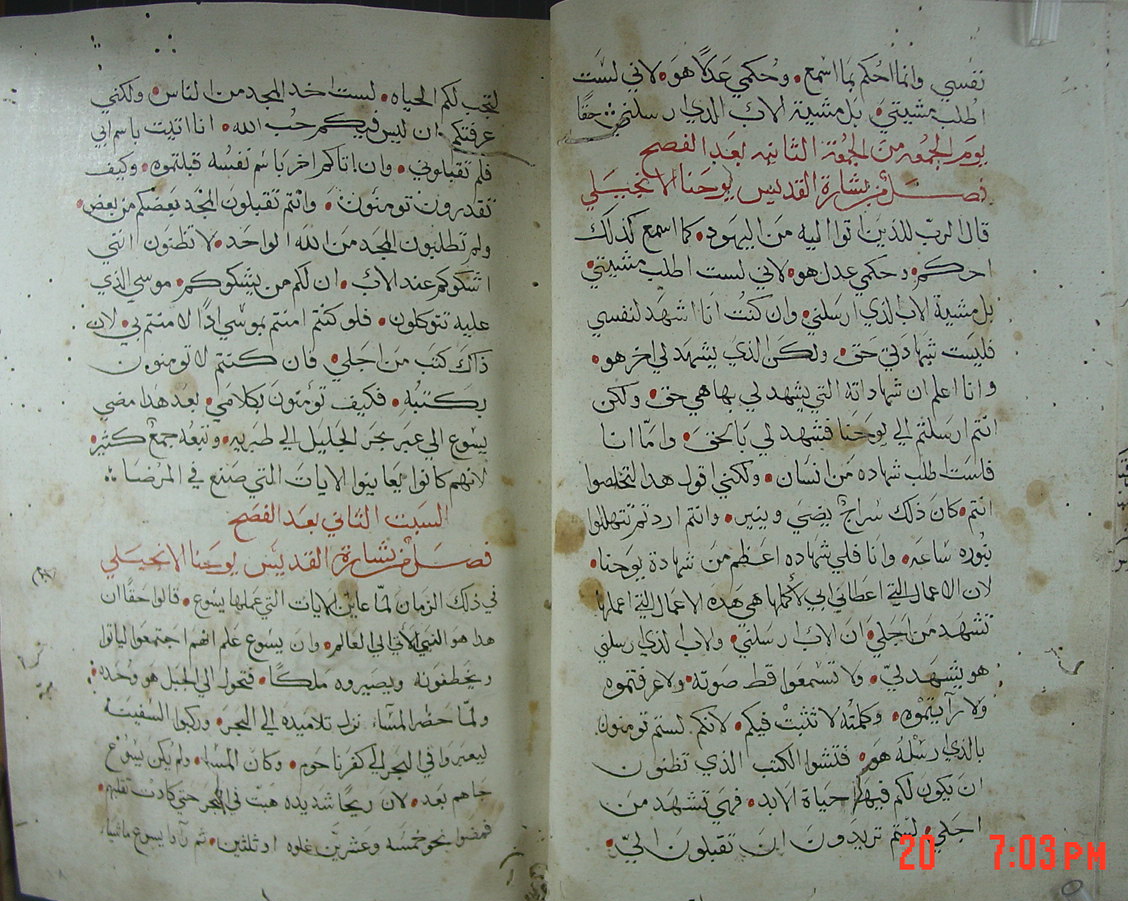 نفسي وانما احكم بما اسمع • وحكمي عدلا هو • لاني لست
اطلب مشيتي • بل مشية الاب الذي ارسلني ⁘ حقا
يوم الجمعه من الجمعة الثانيه بعد الفصح
فصل من بشارة القديس يوحنا الانجيلي
قال الرب للذين اتوا اليه من اليهود • كما اسمع كذلك
احكم • وحكمي عدل هو • لاني لست اطلب مشيتي •
بل مشية الاب الذي ارسلني • وان كنت انا اشهد لنفسي
فليست شهادتي حق • ولكن الذي يشهد لي اخر هو •
وانا اعلم ان شهاداته التي يشهد لي بها هي حق • ولكن
انتم ارسلتم الي يوحنا فشهد لي بالحق • وامّا انا
فلست طلب شهاده من انسان • ولكني اقول هذا لتخلصوا
انتم • كان ذلك سراج يضي وينير • وانتم اردتم تتهللوا
بنوره ساعه • وانا فلي شهاده اعظم من شهادة يوحنا •
لان الاعمال التي اعطاني ابي لأكملها هي هذه الاعمال التي اعملها
تشهد من اجلي • ان الاب ارسلني • والاب الذي ارسلني
هو يشهد ليّ • ولا تسمعوا قط صوته • ولا عرفتموه
ولا رآيتموه • وكلمته لا تثبت فيكم • لانكم لستم تومنون
بالذي رسله هو • فتشوا الكتب الذي تظنون
ان يكون لكم فيها حياة الابد • فهي تشهد من
اجلي • لستم تريدون ان تقبلون اليّ •
لتجب لكم الحياه • لست اخد المجد من الناس • ولكني
عرفتكم ان ليس فيكم حب الله • انا اتيت باسم ابي
فلم تقبلوني • وان اتاكم اخر باسم نفسه قبلتموه • وكيف
تقدرون تومنون • وانتم تقبلون المجد بعضكم من بعض •
ولم تطلبون المجد من الله الواحد • لا تظنون انني
اشكوكم عند الاب • ان لكم من يشكوكم • موسي الذي
عليه تتوكلون • فلو كنتم امنتم بموسي اذًا لامنتم بي • لان
ذاك كتب من اجلي • فان كنتم لا تومنون
بكتبه • فكيف تومنون بكلامي • بعد هدا مضي
يسوع الي عبر بحر الجليل الي طبريه • وتبعه جمعٌ كثير •
لانهم كانوا يعاينوا الايات التي صنع في المرضا ⁘
السبت الثاني بعد الفصح
فصل من بشارة القديس يوحنا الانجيلي
في ذلك الزمان لمّا عاين الايات التي عملها يسوع • قالوا حقًا ان
هدا هو النبي الاتي الي العالم • وان يسوع علم انهم اجتمعوا لياتوا
ويخطفونه ويصيروه ملكًا • فتحول الي الجبل هو وحده •
ولمّا حضر المسآء نزل تلاميده الي البحر • وركبوا السفينة
ليعبروا في البحر الي كفرناحوم • وكان المسا • ولم يكن يسوع
جاهم بعد • لان ريحًا شديده هبت في البحر حتي كادت تقلبهم •
فمضوا نحو خمسه وعشرين غلوه او ثلثين • ثم رآوا يسوع ماشيا